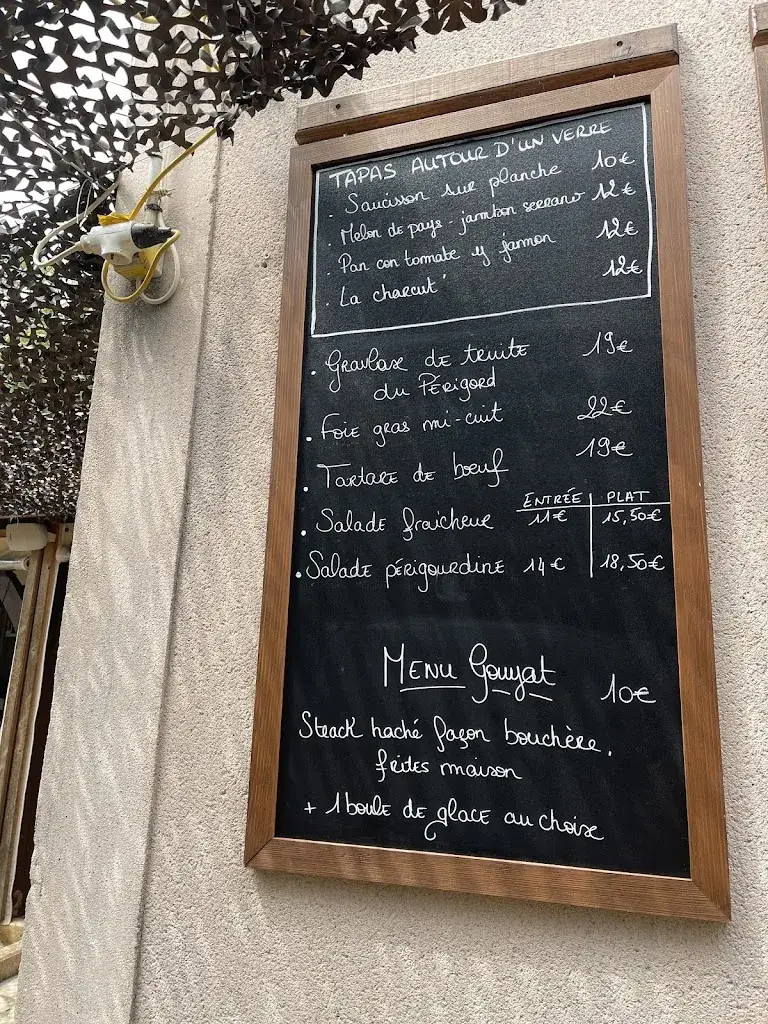 TAPAS AUTOUR D'UN VERRE
. Saucisson sur planche 10€
. Melon de pays - jambon serrano 12€
. Pan con tomate y jamon 12€
. La charcut' 12€
. Gravlax de truite 19€
du Périgord
. Foie gras mi-cuit 22€
. Tartare de bœuf 19€
ENTRÉE PLAT
. Salade fraîcheur 11€ 15,50€
. Salade périgourdine 14€ 18,50€
MENU Gouyat 10€
Steack haché façon bouchère,
frites maison
+ 1 boule de glace au choix